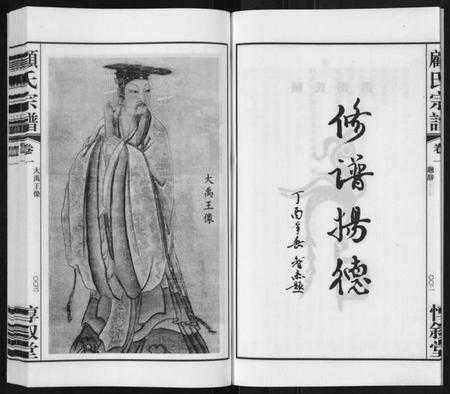 顧氏宗譜
卷一
題辭
〇〇一
惇敘堂
修谱揚德
丁酉年春
大禹王像
顧氏宗譜
卷一
大禹王像
〇〇三
惇叙堂